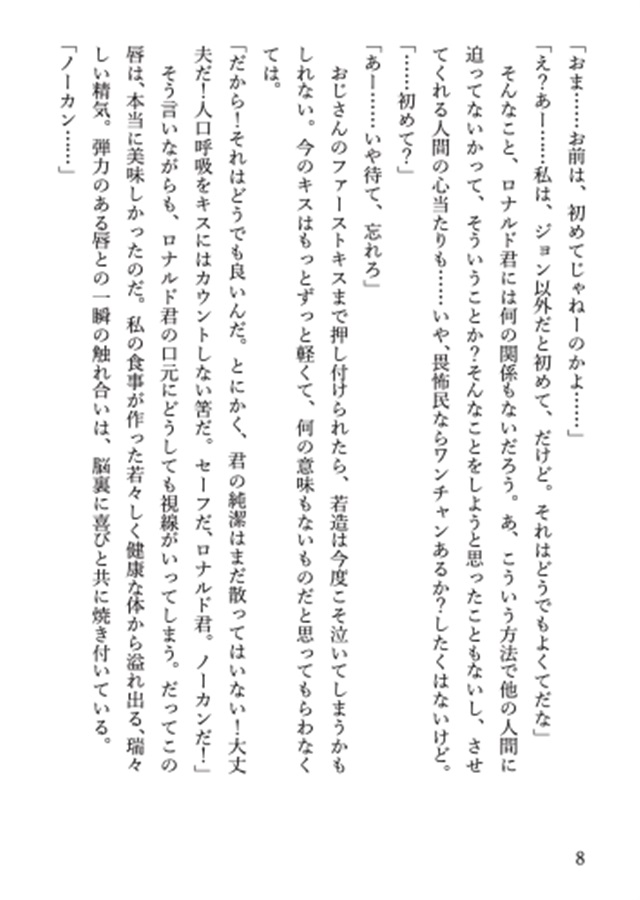 「おま……お前は、初めてじゃねーのかよ……」
「え?あー……私は、ジョン以外だと初めて、だけど。それはどうでもよくてだな」
そんなこと、ロナルド君には何の関係もないだろう。あ、こういう方法で他の人間に
迫ってないかって、そういうことか?そんなことをしようと思ったこともないし、させ
てくれる人間の心当たりも……いや、畏怖民ならワンチャンあるか?したくはないけど。
「……初めて?」
「あー……いや待て、忘れろ」
おじさんのファーストキスまで押し付けられたら、若造は今度こそ泣いてしまうかも
しれない。今のキスはもっとずっと軽くて、何の意味もないものだと思ってもらわなく
ては。
「だから!それはどうでも良いんだ。とにかく、君の純潔はまだ散ってはいない!大丈
夫だ!人口呼吸をキスにはカウントしない筈だ。セーフだ、ロナルド君。ノーカンだ!」
そう言いながらも、ロナルド君の口元にどうしても視線がいってしまう。だってこの
唇は、本当に美味しかったのだ。私の食事が作った若々しく健康な体から溢れ出る、瑞々
しい精気。弾力のある唇との一瞬の触れ合いは、脳裏に喜びと共に焼き付いている。
「ノーカン……」
8